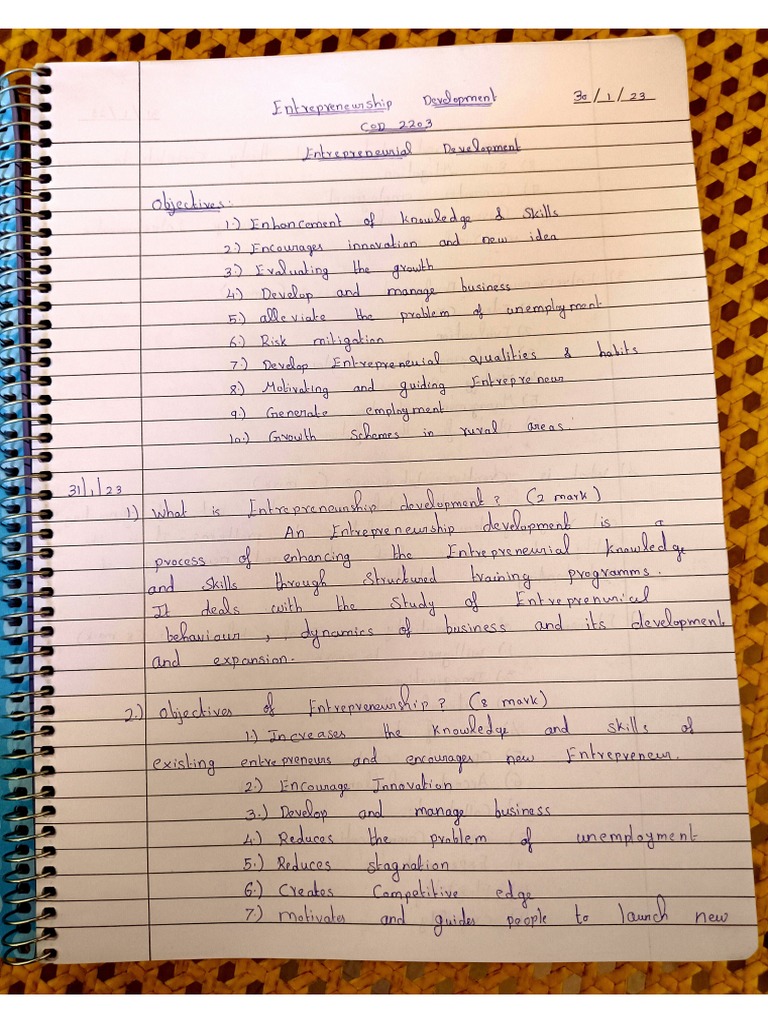 Entrepreneurship Development 30/1/23
COD 2203
Entrepreneurial Development
Objectives:
1.) Enhancement of knowledge & skills
2.) Encourages innovation and new idea
3.) Evaluating the growth
4.) Develop and manage business
5.) alleviate the problem of unemployment
6.) Risk mitigation
7.) Develop Entrepreneuial qualities & habits
8.) Motivating and guiding Entrepreneur
9.) Generate employment
10.) Growth Schemes in rural areas.
31/1/23
1) What is Entrepreneunship development? (2 mark)
An Entrepreneurship development is a
process of enhancing the Entrepreneurial knowledge
and skills through structured training programms.
It deals with the study of Entreprenurical
behaviour, dynamics of business and its development
and expansion.
2.) Objectives of Entrepreneurship? (8 mark)
1.) Increases the knowledge and skills of
existing entrepreneurs and encourages new Entrepreneur.
2.) Encourage Innovation
3.) Develop and manage business
4.) Reduces the problem of unemployment
5.) Reduces stagnation
6.) Creates Competitive edge
7.) motivates and guides people to launch new